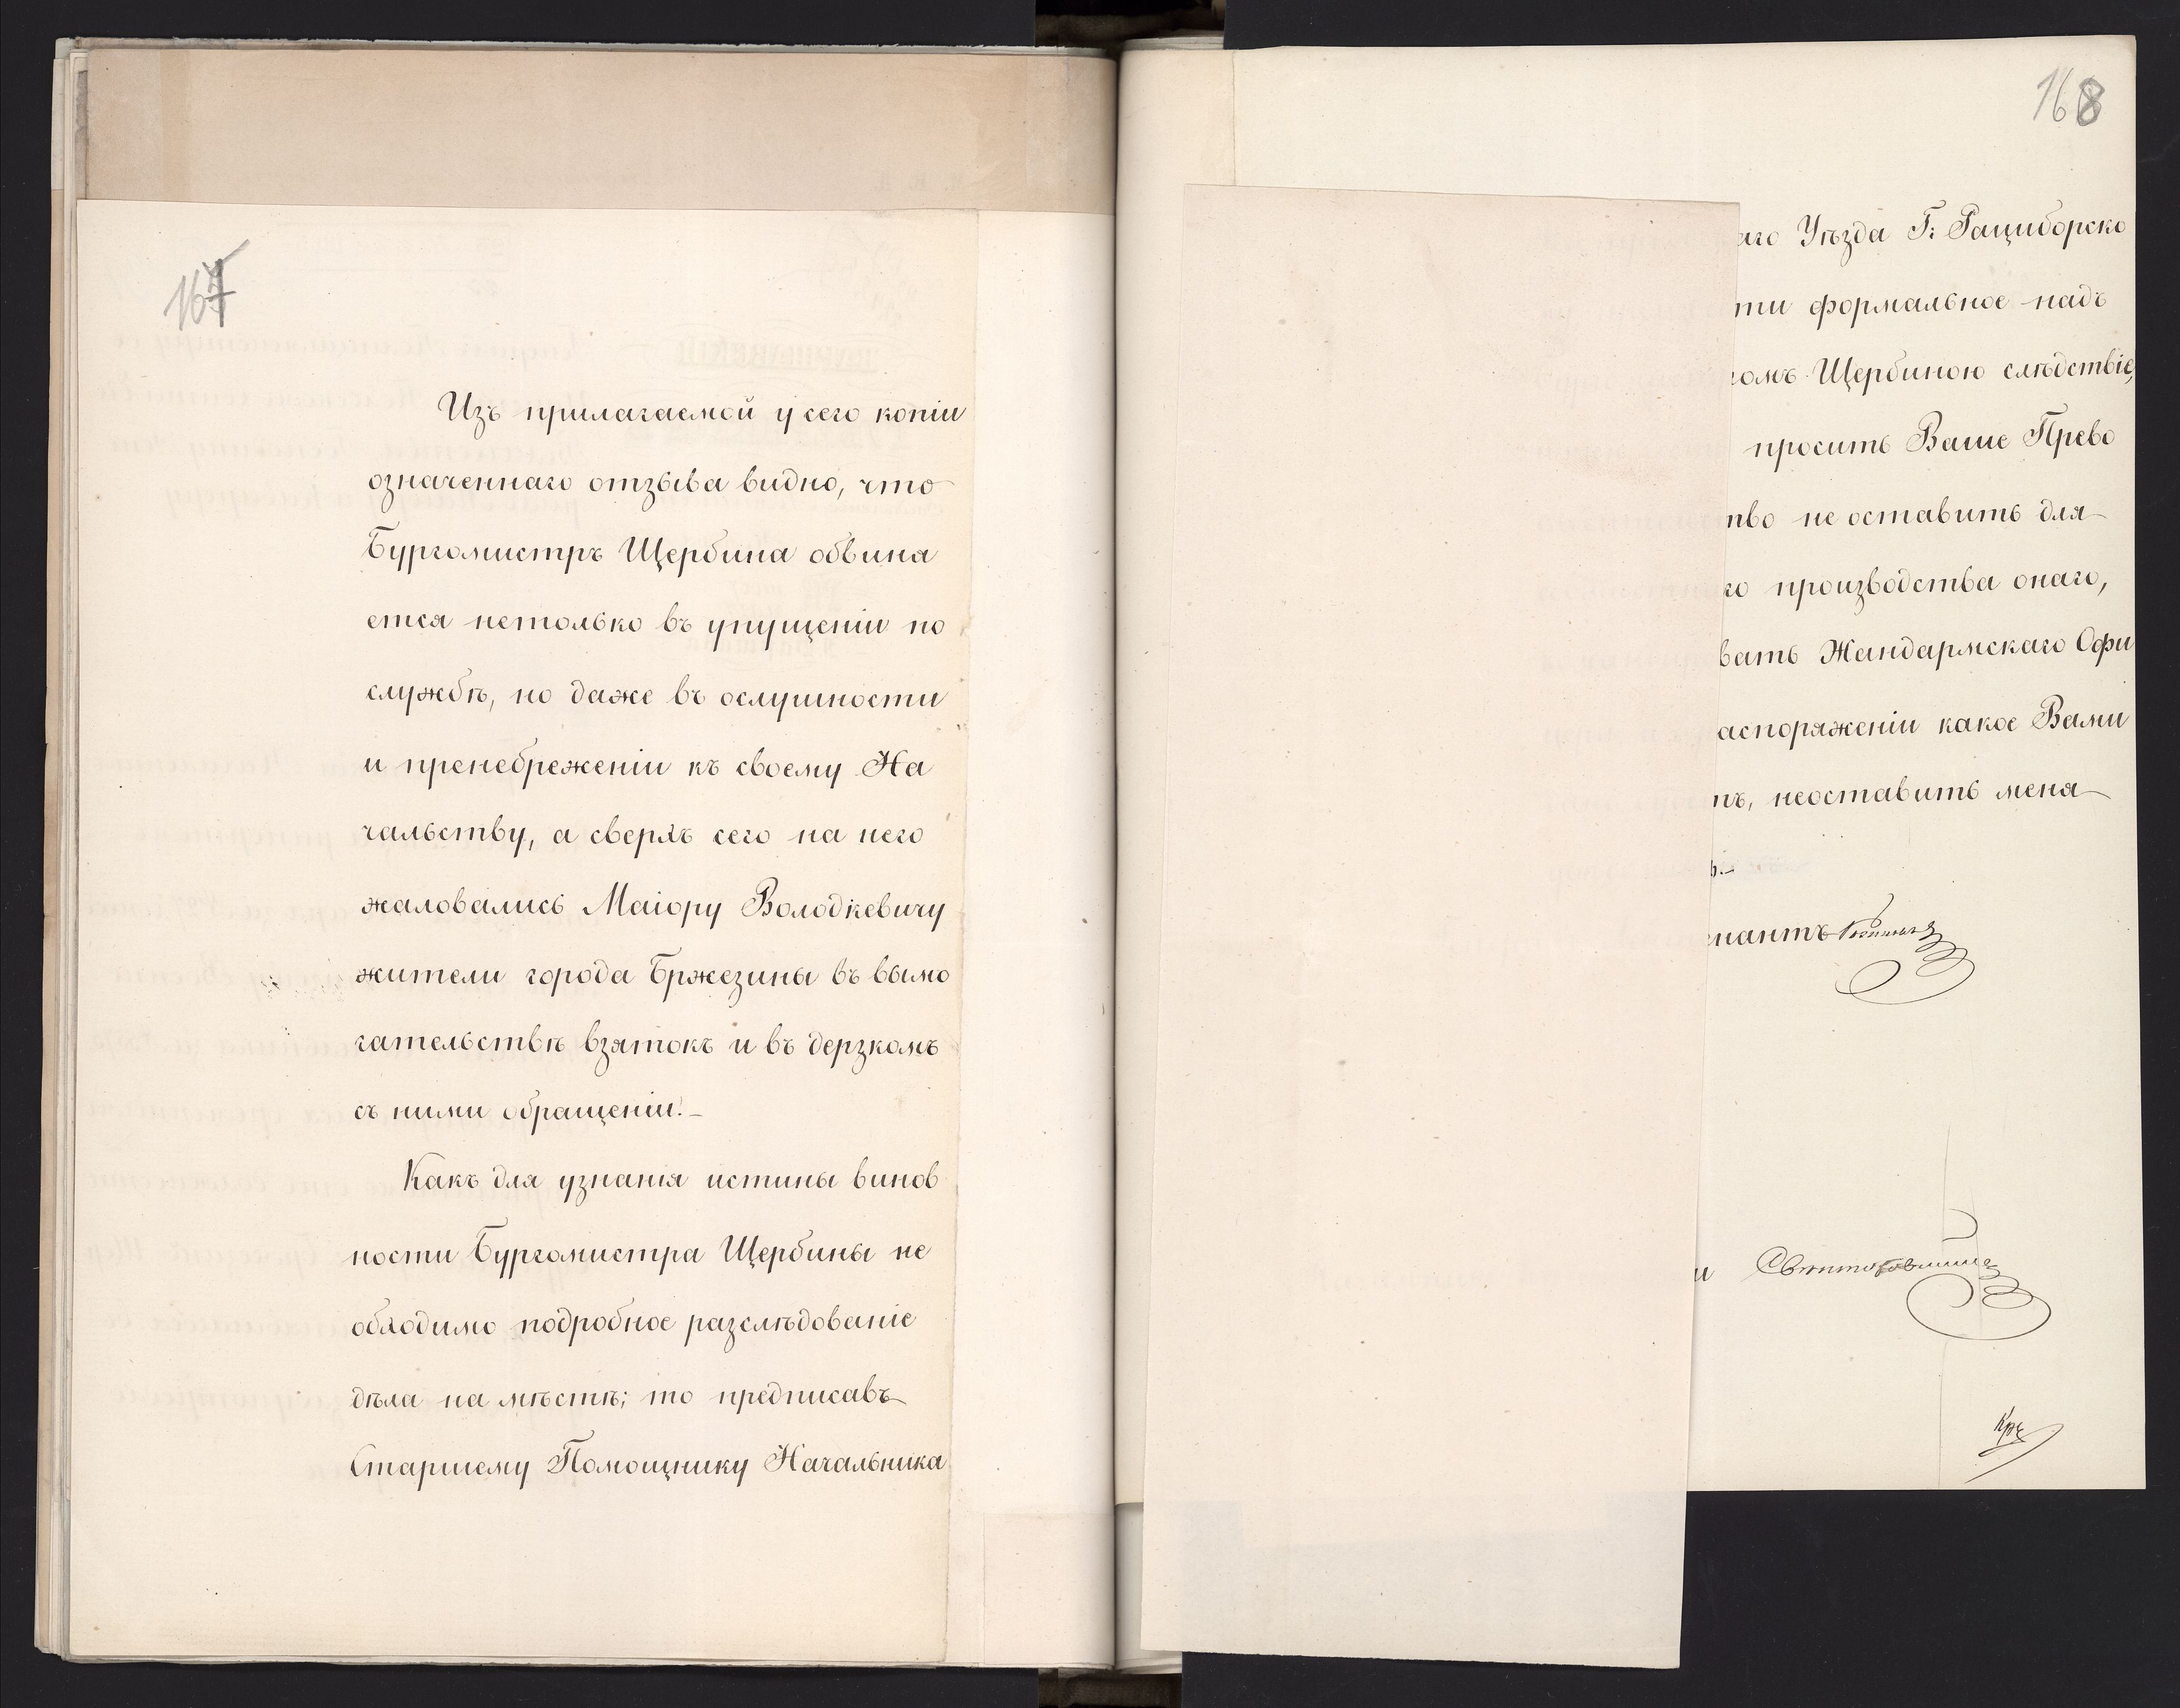 167
Изъ прилагаемой у сего копіи
означеннаго отзыва видно, что
Бургомистръ Щербина обвиня
ется нетолько въ упущеніи по
службѣ, но даже въ ослушности
и пренебреженіи къ своему На
чальству, а сверхъ сего на него
жаловались Маіору Володкевичу
жители города Бржезины въ вымо
гательствѣ взятокъ и въ дерзкомъ
съ ними обращеніи.
Какъ для узнанія истины винов
ности Бургомистра Щербины не
обходимо подробное разслѣдованіе
дѣла на мѣстѣ; то предписавъ
Старшему Помощнику Начальника
168
аго Уѣзда Г: Рациборско
ти формальное надъ
омъ Щербиною слѣдствіе,
просить Ваше Прево
тво не оставить для
го производства онаго,
вать Жандармскаго Офи
аспоряженіи какое Вами
тъ, неоставить меня
ь.
нантъ
и